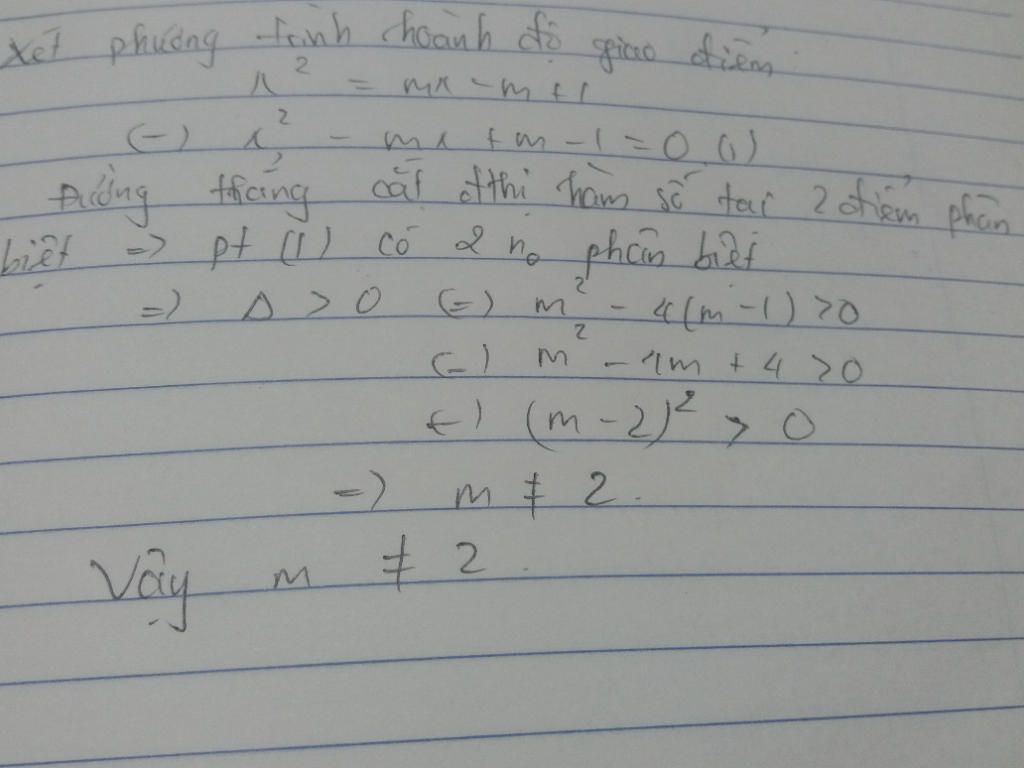 Xét phương trình hoành độ giao điểm
x² = mx - m + 1
(=) x² - mx + m - 1 = 0 (1)
Đường thẳng cắt đthị hàm số tại 2 điểm phân
biệt => pt (1) có 2 n₀ phân biệt
=) Δ > 0 (=) m² - 4(m - 1) > 0
(=) m² - 4m + 4 > 0
(=) (m - 2)² > 0
=) m ≠ 2.
Vậy m ≠ 2.